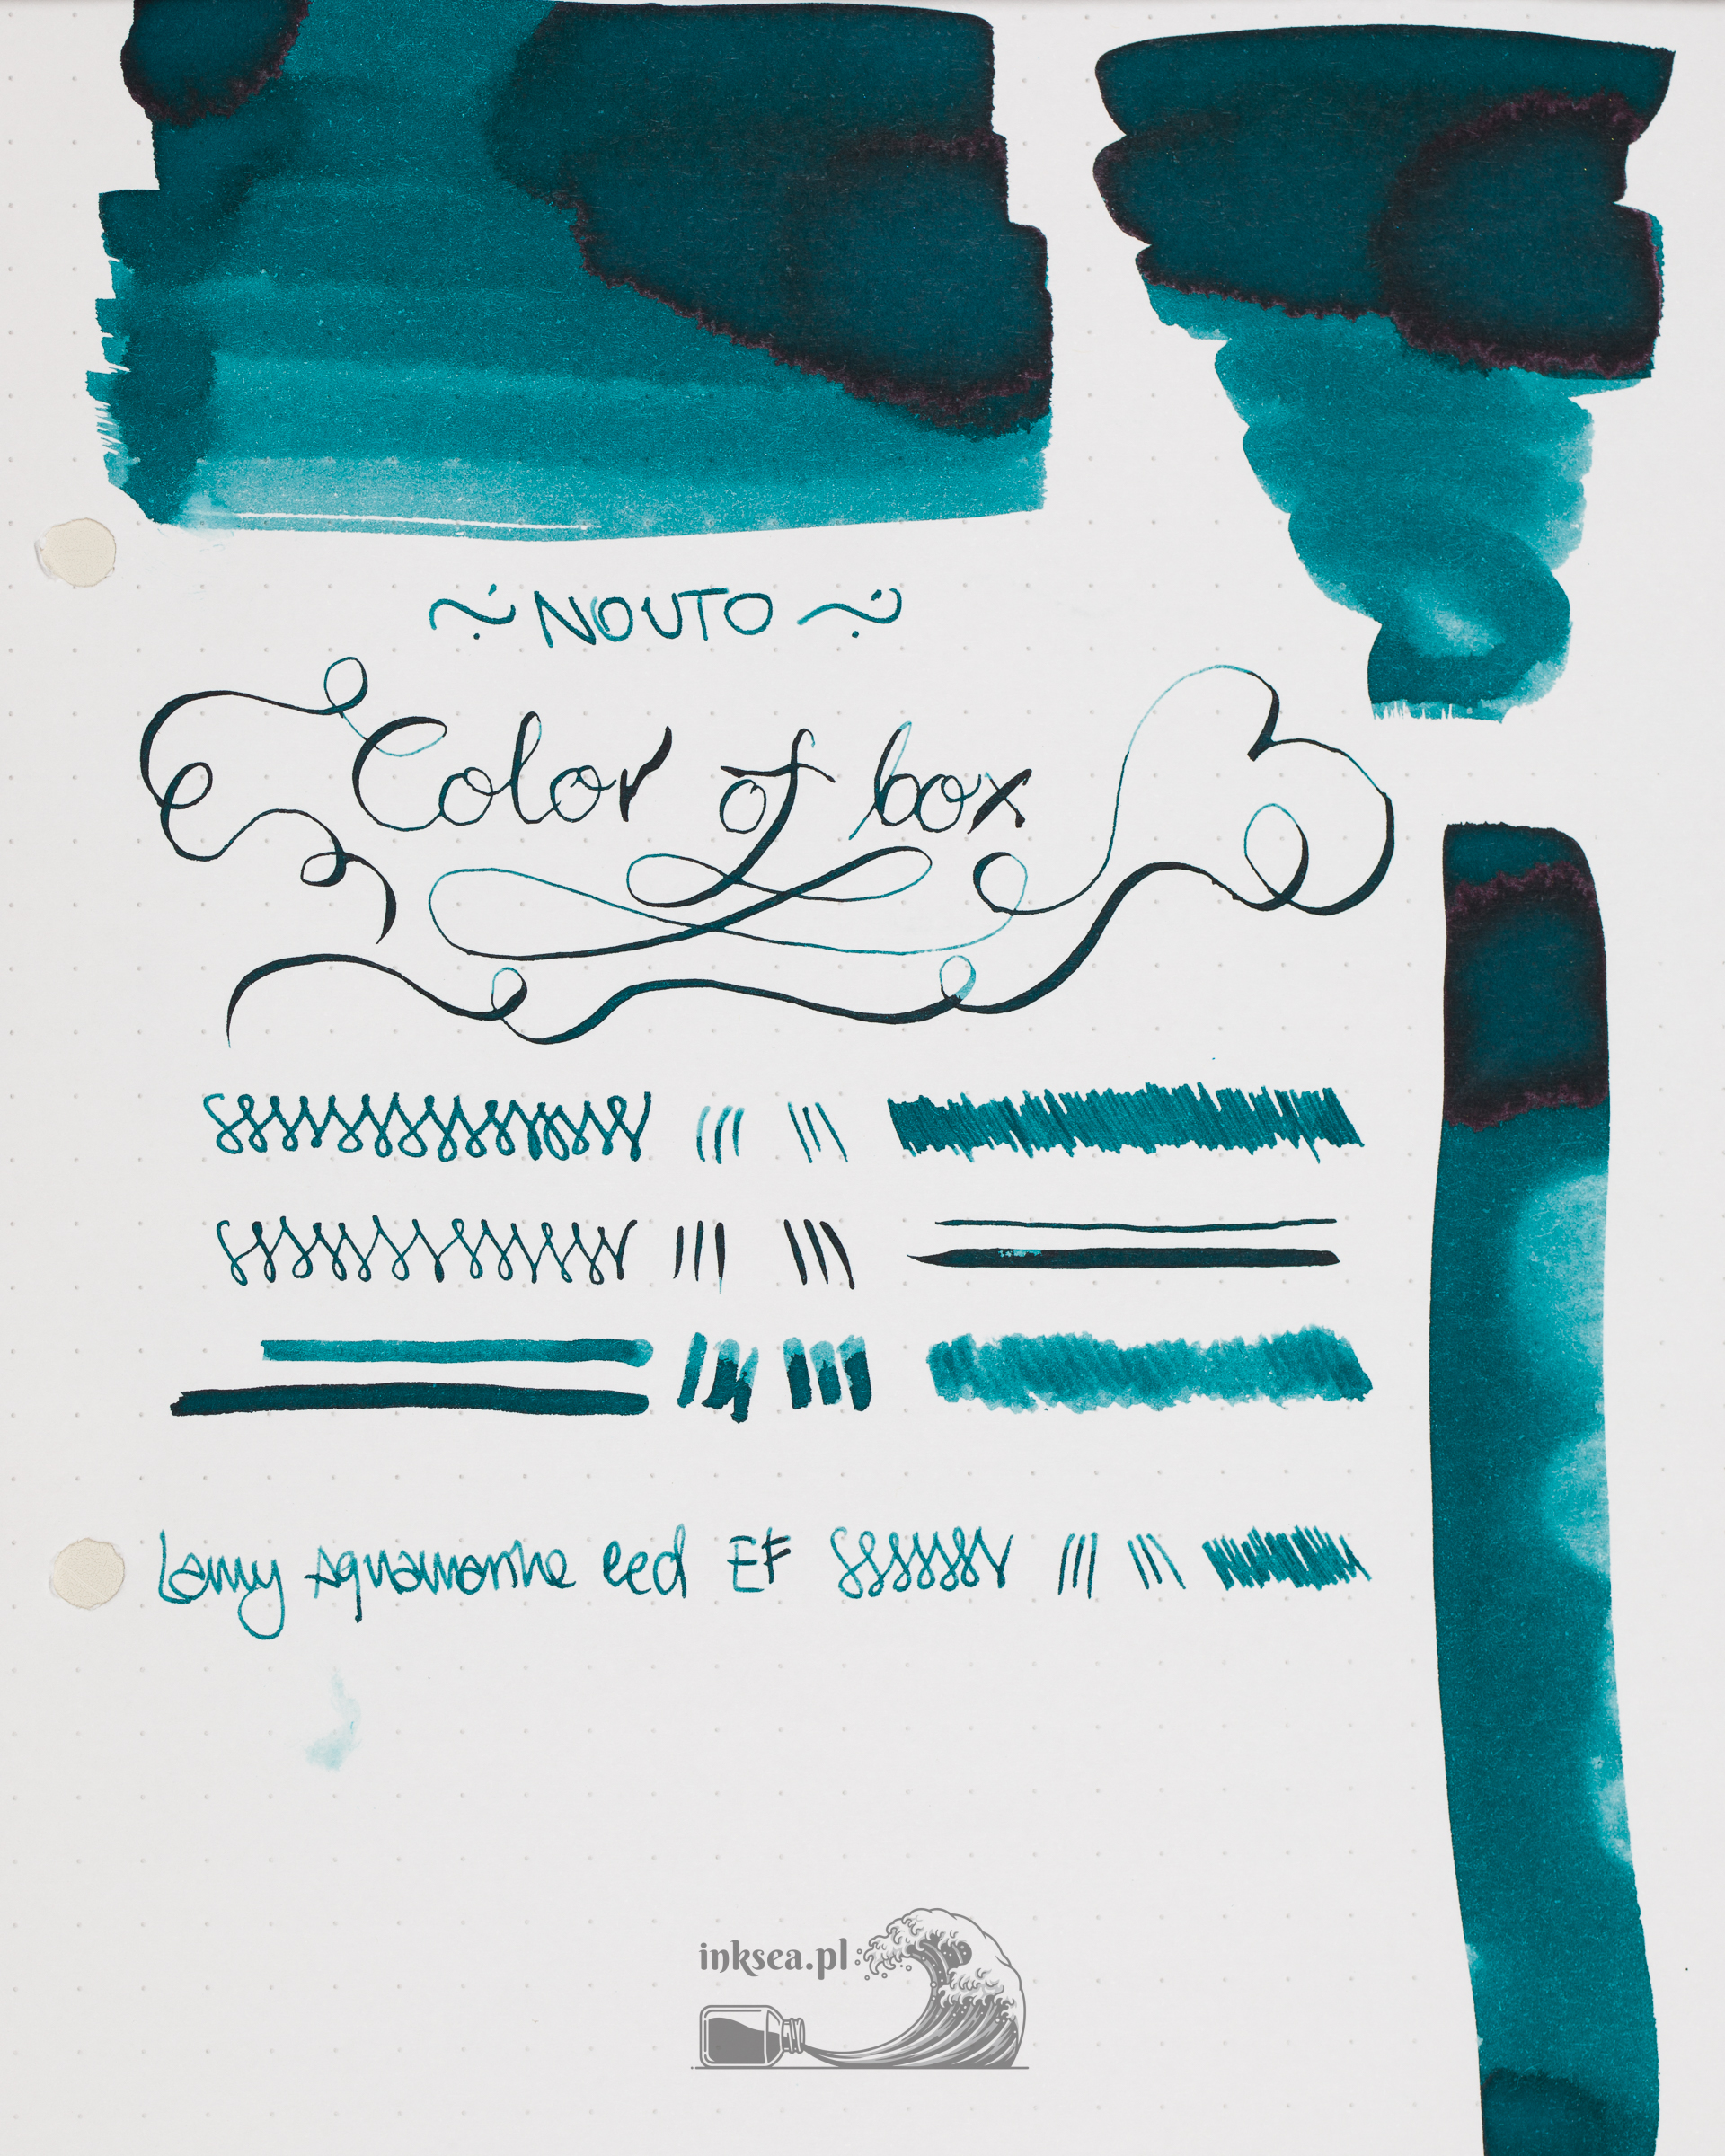 ~ NOUTO ~
Color of box
Lamy Aquamarine red EF
inksea.pl